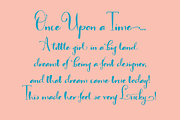 Once Upon a Time
A little girl in a big land
dreamt of being a font designer,
and that dream came true today!
This made her feel so very Lucky!